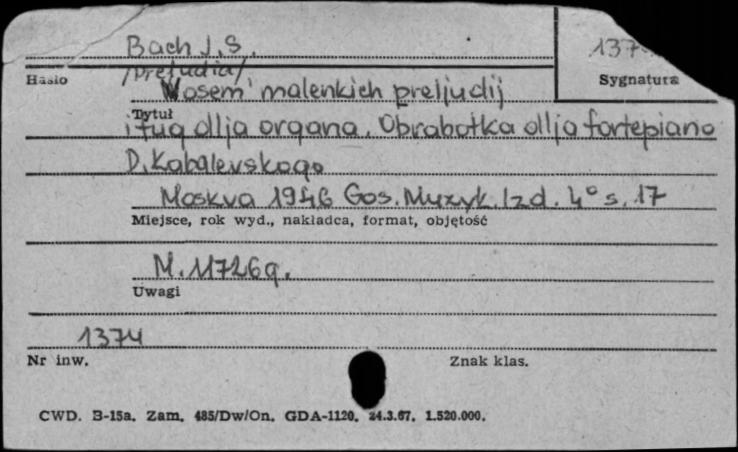 Bach J.S. 137
/Preludia/
Hasło Sygnatura
Wosem' malenkich preljudij
Tytuł
i fug dlja organa. Obrabotka dlja fortepiano
D. Kabalevskogo
Moskva 1946 Gos. Muzyk. Izd. 4° s. 17
Miejsce, rok wyd., nakładca, format, objętość
M. 11726 g.
Uwagi
1374
Nr inw. Znak klas.
CWD. B-15a. Zam. 485/Dw/On. GDA-1120. 24.3.67. 1.520.000.